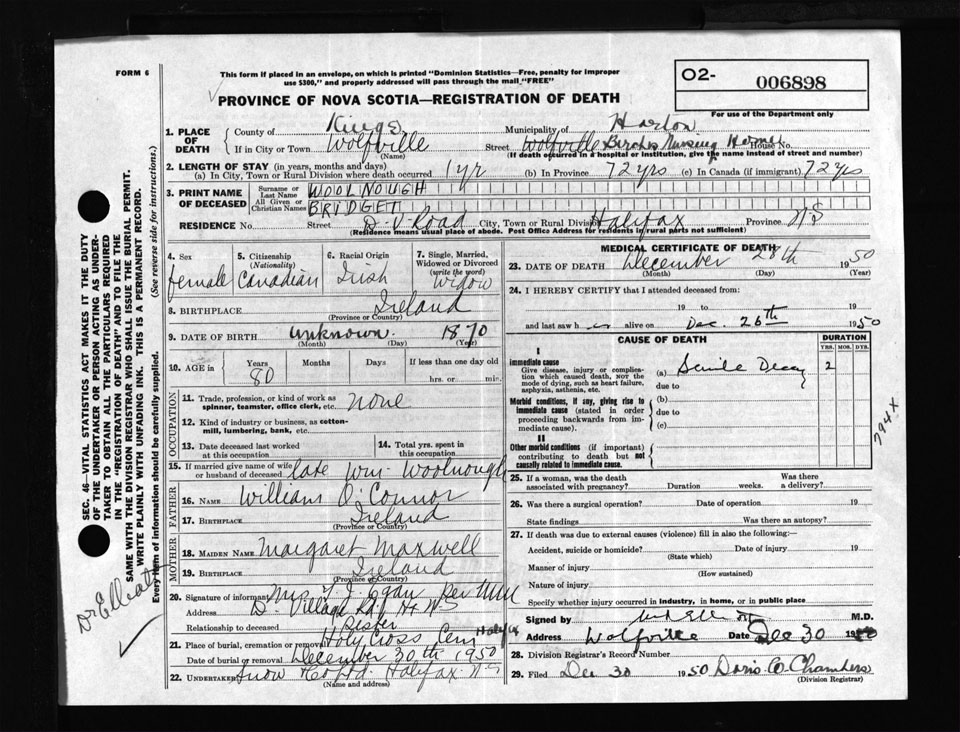 FORM 6
This form if placed in an envelope, on which is printed "Dominion Statistics—Free, penalty for improper
use $300," and properly addressed will pass through the mail "FREE"
PROVINCE OF NOVA SCOTIA—REGISTRATION OF DEATH
O2- 006898
For use of the Department only
1. PLACE OF DEATH
County of Kings Municipality of Horton
If in City or Town Wolfville (Name) Street Wolfville Birches Nursing Home House No.
(If death occurred in a hospital or institution, give the name instead of street and number)
2. LENGTH OF STAY (in years, months and days)
(a) In City, Town or Rural Division where death occurred 1 yr (b) In Province 72 yrs (c) In Canada (if immigrant) 72 yrs
3. PRINT NAME OF DECEASED
Surname or Last Name WOOLNOUGH
All Given or Christian Names BRIDGET
RESIDENCE No. Street D-V-Road City, Town or Rural Division Halifax Province N S
(Residence means usual place of abode. Post Office Address for residents in rural parts not sufficient)
4. Sex female
5. Citizenship (Nationality) Canadian
6. Racial Origin Irish
7. Single, Married, Widowed or Divorced (write the word) Widow
8. BIRTHPLACE Ireland (Province or Country)
9. DATE OF BIRTH unknown (Month) (Day) 1870 (Year)
10. AGE in Years 80 Months Days If less than one day old hrs. or min.
OCCUPATION
11. Trade, profession, or kind of work as spinner, teamster, office clerk, etc. none
12. Kind of industry or business, as cotton-mill, lumbering, bank, etc.
13. Date deceased last worked at this occupation
14. Total yrs. spent in this occupation
15. If married give name of wife or husband of deceased late Wm. Woolnough
FATHER
16. NAME William O'Connor
17. BIRTHPLACE Ireland (Province or Country)
MOTHER
18. MAIDEN NAME Margaret Maxwell
19. BIRTHPLACE Ireland (Province or Country)
20. Signature of informant Mrs J. Egan
Address D. Village Rd Hx NS
Relationship to deceased Sister
21. Place of burial, cremation or removal Holy Cross Cem Halifax
Date of burial or removal December 30th 1950
22. UNDERTAKER Snow & Co Ltd Halifax NS
(Name and address)
MEDICAL CERTIFICATE OF DEATH
23. DATE OF DEATH December (Month) 28th (Day) 1950 (Year)
24. I HEREBY CERTIFY that I attended deceased from:
19 to 19
and last saw h er alive on Dec. 26th 1950
CAUSE OF DEATH
DURATION
YRS. MOS. DYS.
I
Immediate cause
Give disease, injury or complication which caused death, not the mode of dying, such as heart failure, asphyxia, asthenia, etc.
(a) Senile Decay 2
due to
Morbid conditions, if any, giving rise to immediate cause (stated in order proceeding backwards from immediate cause).
(b)
due to
(c)
II
Other morbid conditions (if important) contributing to death but not causally related to immediate cause.
794 X
25. If a woman, was the death associated with pregnancy? Duration weeks. Was there a delivery?
26. Was there a surgical operation? Date of operation 19
State findings Was there an autopsy?
27. If death was due to external causes (violence) fill in also the following:—
Accident, suicide or homicide? (State which) Date of injury 19
Manner of injury (How sustained)
Nature of injury
Specify whether injury occurred in industry, in home, or in public place
Signed by M.D.
Address Wolfville Date Dec 30 1950
28. Division Registrar's Record Number
29. Filed Dec 30 1950 Doris O. Chambers
(Division Registrar)
SEC. 46—VITAL STATISTICS ACT MAKES IT THE DUTY
OF THE UNDERTAKER OR PERSON ACTING AS UNDER-
TAKER TO OBTAIN ALL THE PARTICULARS REQUIRED
IN THE "REGISTRATION OF DEATH" AND TO FILE THE
SAME WITH THE DIVISION REGISTRAR WHO SHALL ISSUE THE BURIAL PERMIT.
WRITE PLAINLY WITH UNFADING INK. THIS IS A PERMANENT RECORD.
Every item of information should be carefully supplied. (See reverse side for instructions.)